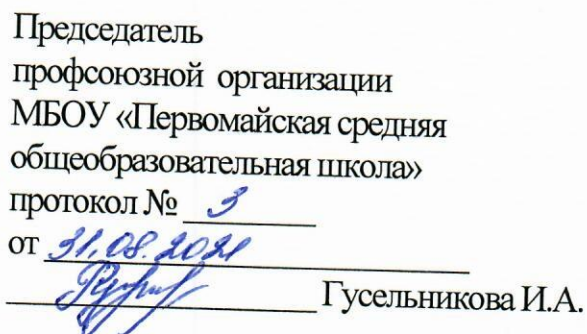 Председатель
профсоюзной организации
МБОУ «Первомайская средняя
общеобразовательная школа»
протокол № 3
от 31.08.2021
Гусельникова И.А.